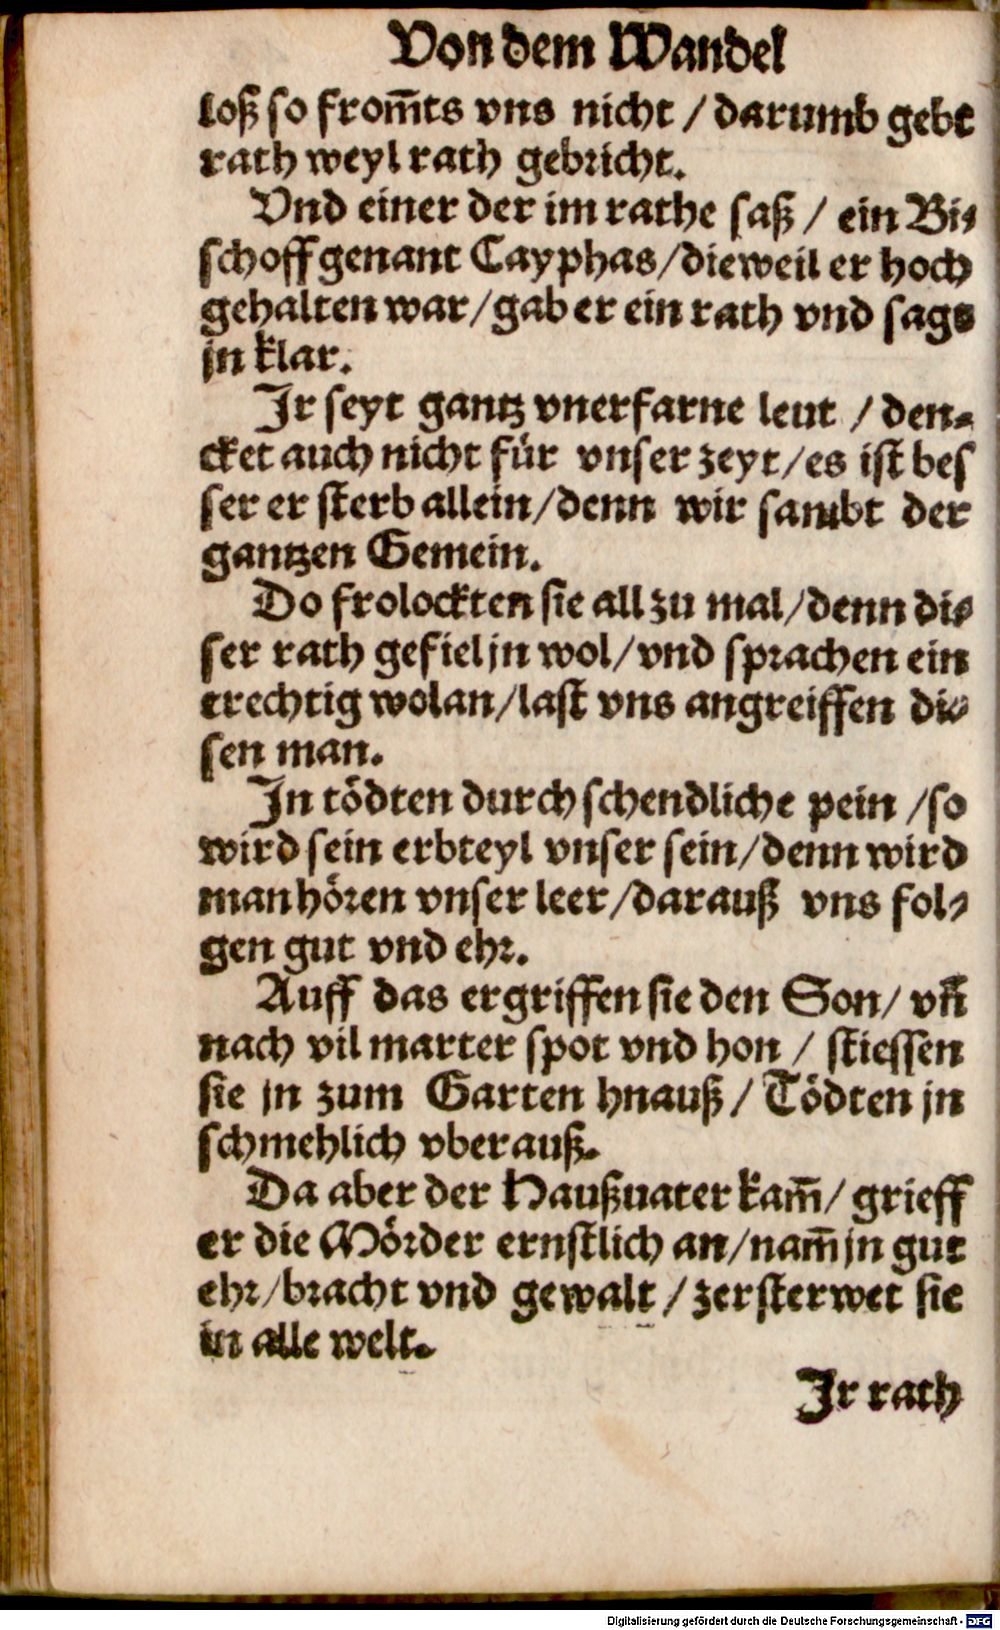 Von dem Wandel
loß so from̃ts vns nicht / darumb gebt
rath weyl rath gebricht.
Vnd einer der im rathe saß / ein Bi-
schoff genant Cayphas / dieweil er hoch
gehalten war / gab er ein rath vnd sags
jn klar.
Jr seyt gantz vnerfarne leut / den-
cket auch nicht für vnser zeyt / es ist bes
ser er sterb allein / denn wir sambt der
gantzen Gemein.
Do frolockten sie all zu mal / denn di-
ser rath gefiel jn wol / vnd sprachen ein
trechtig wolan / last vns angreiffen di-
sen man.
Jn tödten durch schendliche pein / so
wird sein erbteyl vnser sein / denn wird
man hören vnser leer / darauß vns fol-
gen gut vnd ehr.
Auff das ergriffen sie den Son / vn̄
nach vil marter spot vnd hon / stiessen
sie jn zum Garten hnauß / Tödten jn
schmehlich vberauß.
Da aber der Haußuater kam̃ / grieff
er die Mörder ernstlich an / nam̃ jn gut
ehr / bracht vnd gewalt / zersterwet sie
in alle welt.
Jr rath
Digitalisierung gefördert durch die Deutsche Forschungsgemeinschaft - DFG